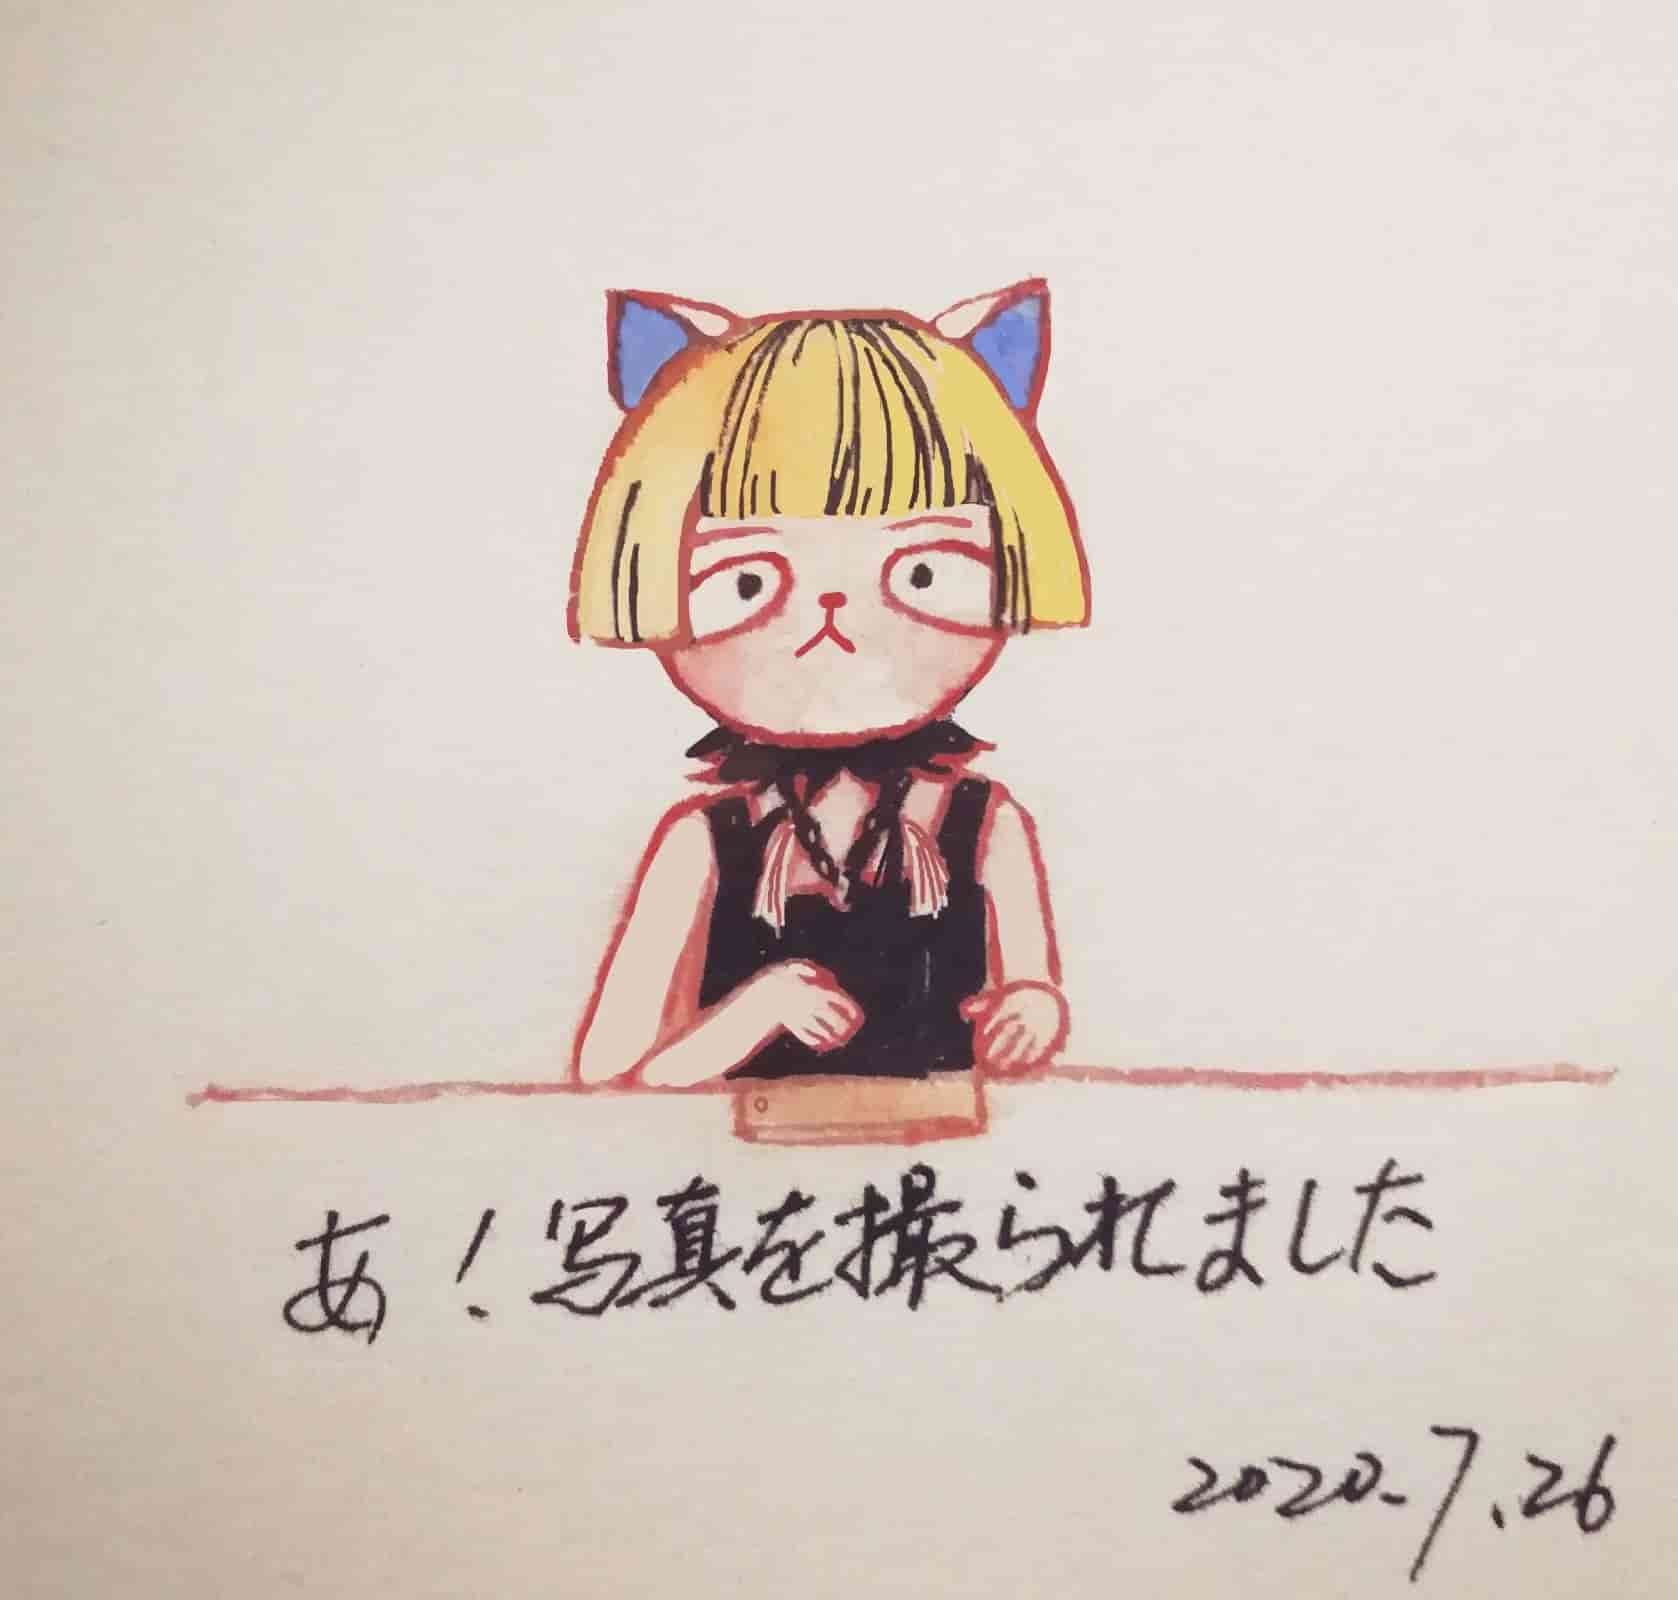 あ！写真を撮られました
2020.7.26